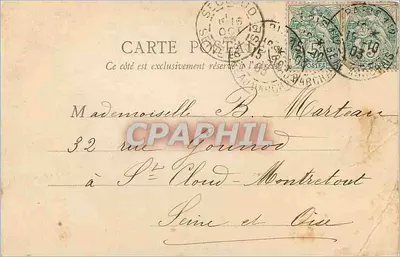 CARTE POSTALE
Ce côté est exclusivement réservé à l'adresse
Mademoiselle B. Marteau
CPAPHIL
32 rue Gounod
à St Cloud - Montretout
Seine et Oise